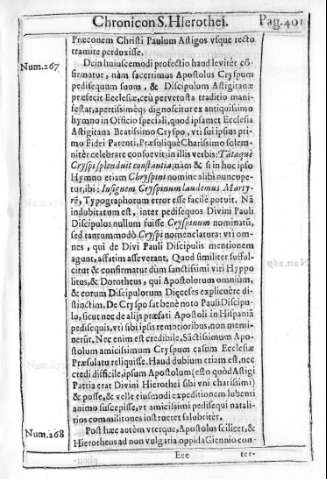 Chronicon S. Hierothei. Pag. 401
Præconem Christi Paulum Astigos vsque recto
tramite perduxisse.
Num. 267 Dein huiuscemodi profectio haud levitèr cõ-
firmatur, nàm sacerrimus Apostolus Cryspum
pedisequum suum, & Discipulum Astigitanæ
præfecit Ecclesiæ, cèu pervetusta traditio mani-
festat, apertissimèq; dignoscitur ex antiquissimo
hymno in Officio speciali, quod ipsamet Ecclesia
Astigitana Beatissimo Cryspo, vti sui ipsius pri-
mo Fidei Parenti, Præsuliquè Charissimo solem-
nitèr celebrare consuevit, in illis verbis: Tátaquè
Cryspi splenduit constantia; nàm & si in hoc ipso
Hymno etiam Chryspini nomine alibi nuncupe-
tur, ibi: Insignem Cryspinum laudemus Marty-
rẽ, Typographorum error esse facilè potuit. Nã
indubitatum est, inter pedisequos Divini Pauli
Discipulos nullum fuisse Cryspinum nominatũ,
sed tantummodò Cryspi nomenclatura: vti om-
nes, qui de Divi Pauli Discipulis mentionem
agunt, affatim asseverant. Quod similitèr suffal-
citur & confirmatur dùm sanctissimi viri Hyppo
litus, & Dorotheus, qui Apostolorum omnium,
& eorum Discipulorum Diœceses explicuère di-
stinctim. De Cryspo sat benè noto Pauli Discipu-
lo, sicut nec de alijs præfati Apostoli in Hispaniã
pedisequis, vti sibi ipsis remotioribus, non memi-
nerũt. Nec enim est credibile, Sãctissimum Apo-
stolum amicissimum Cryspum casum Ecclesiæ
Præsulatu reliquisse. Haud dubium etiam est, nec
credi difficile, ipsum Apostolum (esto quòd Astigi
Patria erat Divini Hierothei sibi vni charissimi)
& posse, & velle eiusmodi expeditionem lubenti
animo suscepisse, vt amicissimi pedisequi natali-
tios commilitones instrueret salubritèr.
Num. 268 Post hæc autèm vterque, Apostolus scilicet, &
Hierotheus ad non vulgaria oppida Giennio con-
Eee ter-